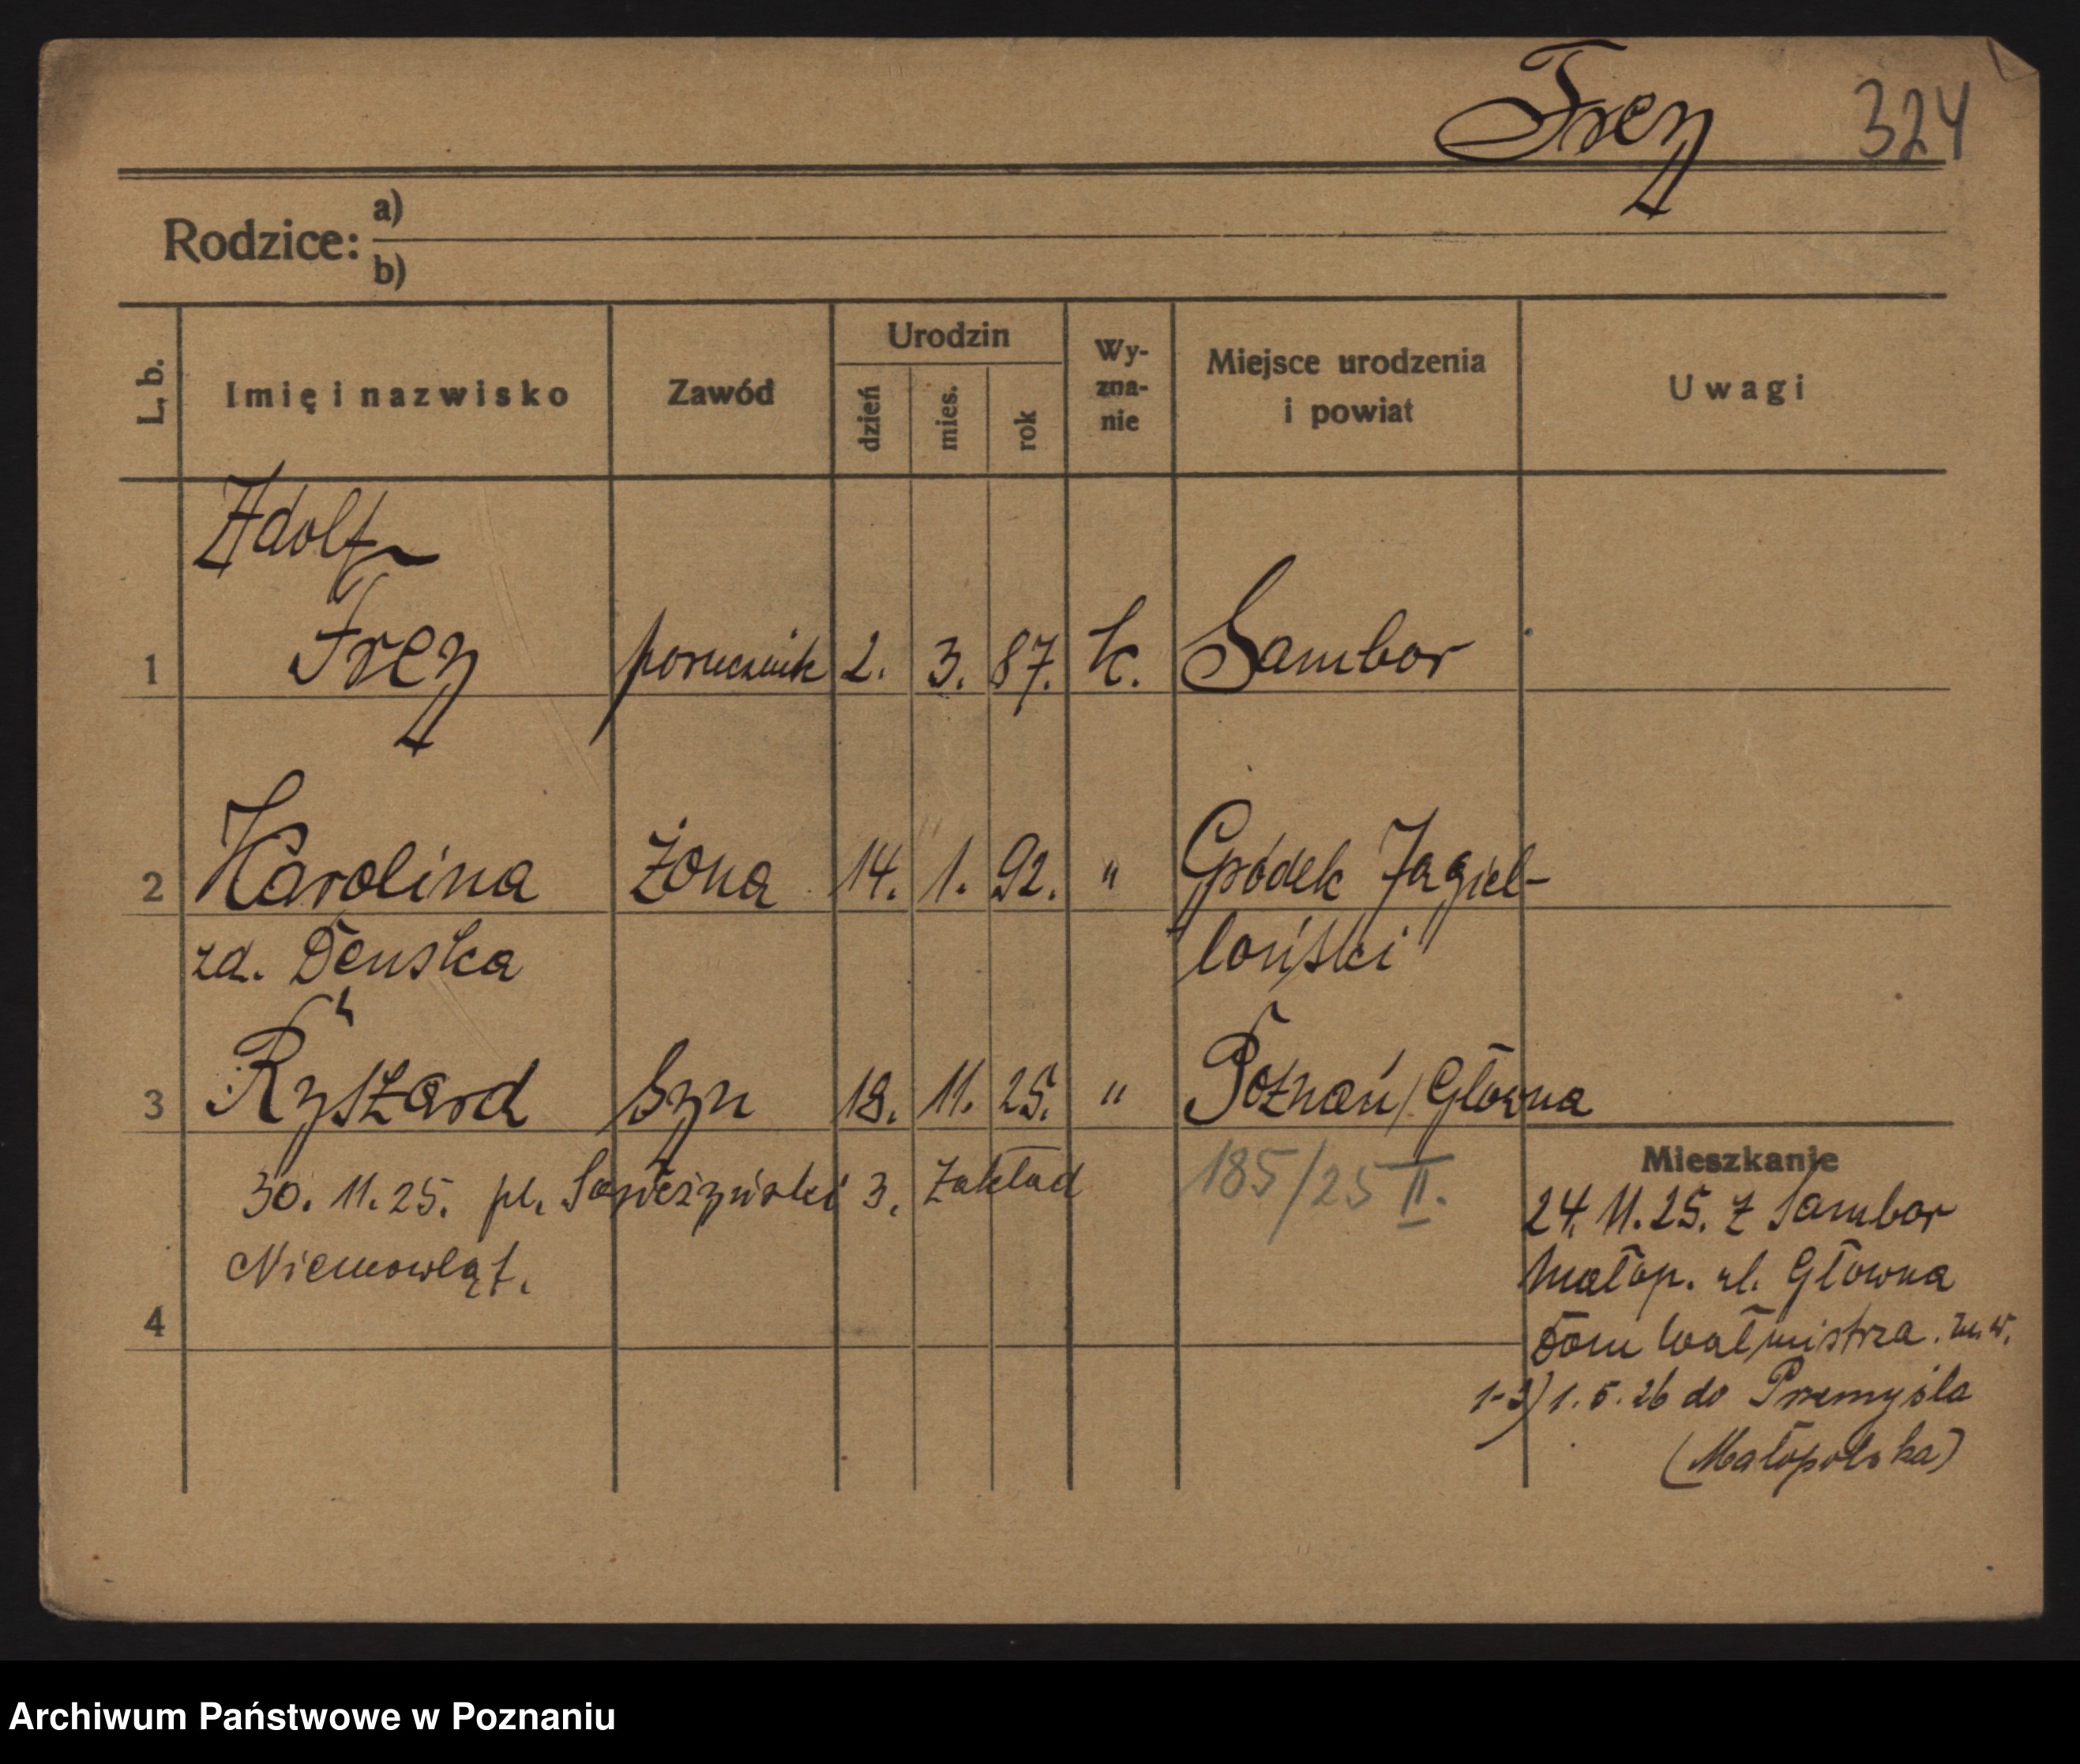 Frey 324
Rodzice: a)
b)
L. b. Imię i nazwisko Zawód Urodzin dzień mies. rok Wy-zna-nie Miejsce urodzenia i powiat Uwagi
Adolf
1 Frey porucznik 2. 3. 87. k. Sambor
2 Karolina żona 14. 1. 92. " Gródek Jagiel-
zd. Denska loński
3 Ryszard syn 18. 11. 25. " Poznań/Główna
30. 11. 25. pl. Sapieżyński 3. Zakład 185/25 II.
Niemowląt.
4
Mieszkanie
24. 11. 25. z Sambor
Małop. ul. Główna
dom wałmistrza.
1-3) 1. 5. 26 do Przemyśla
(Małopolska)
Archiwum Państwowe w Poznaniu